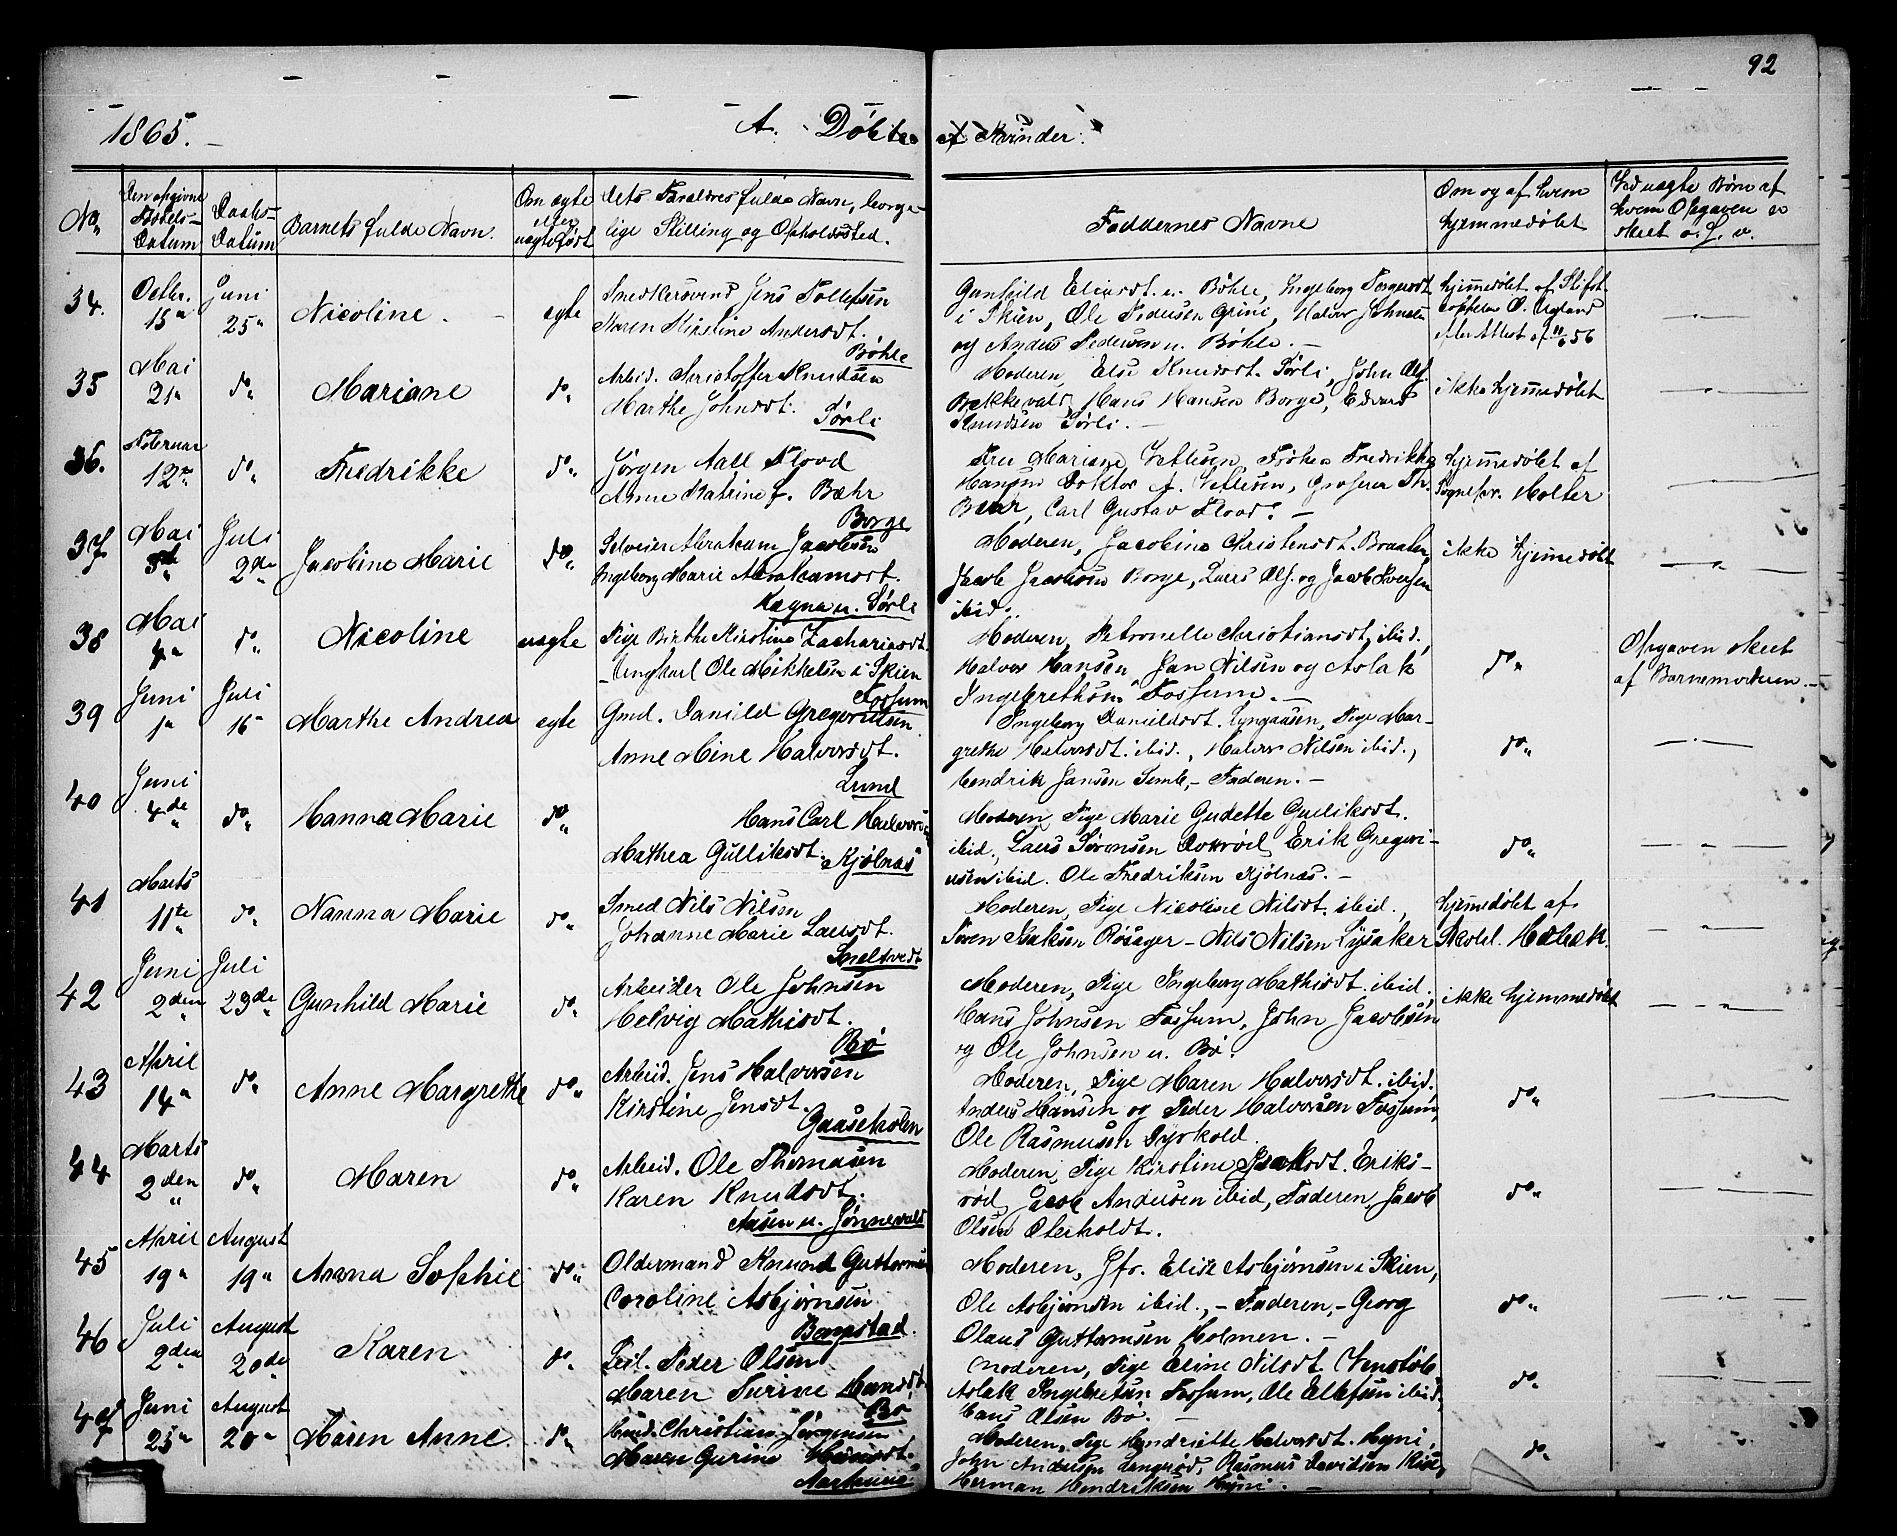 92
1865. A. Döbte Kvinder.
No. Den opgivne Fødsels-Datum Daabs-Datum Barnets fulde Navn. Om ægte eller uægte født dets Forældres fulde Navn, borgerlige Stilling og Opholdssted. Faddernes Navne Om og af hvem hjemmedøbt Ved uægte Børn af hvem Opgaven er skeet o.s.v.
34. Octbr. 15 Juni 25 Nicoline. ægte Snedkersvend Jens Tollefsen
Karen Kirstine Andersdt.
Bøhle
Gunhild i Skien, Ole Pedersen Grini, Halvor Johnsen
og Anders Pedersen u. Bøhle.
hjemmedøbt af
35 Mai 21 do Mariane do Arbeid. Christoffer Knudsen
Marthe Johnsdt.
Sørli
Moderen, Else Knudsdt. Sørli, John Ols.
Bækkevold, Hans Hansen Borge, Edvard
Knudsen Sørli.
ikke hjemmedøbt
36. Februar 12 do Fredrikke do Jørgen Aall Flood
Anne Katrine f. Bæhr
Borge
Fru Mariane Vetlesen, Frøken Fredrikke
Hansen Doktor Vetlesen,
Bæhr, Carl Gustav Flood.
hjemmedøbt af
Sognepr. Holter
37 Mai Juli 2de Jacobine Marie do Selveier Abraham Jacobsen
Ingeborg Marie Abrahamsdt.
u. Sørli
Moderen, Jacobine Christensdt. Braaten,
Jacob Jacobsen Borge, Lars Ols. og Jacob Iversen
ibid.
ikke hjemmedøbt
38 Mai 4 do Nicoline uægte Pige Birthe Kirstine Zachariasdt.
Ungkarl Ole Mikkelsen i Skien
Fossum
Moderen, Petronelle Christiansdt, ibid,
Halvor Hansen, Jan Nilsen og Aslak
Ingebrethsen Fossum.
do
Opgaven skeet
af Barnemoderen.
39 Juni 1 Juli 16 Marthe Andrea ægte Gmd. Daniel Gregersen
Anne Mine Halvorsdt.
Lund
Ingeborg Danielsdt. Lyngaasen, Pige Mar-
grethe Halvorsdt. ibid., Halvor Nilsen ibid.,
Hendrik Jansen Semb, - Faderen.
do
40 Juni 4de do Hanna Marie do Hans Carl Halvorsen
Mathea Gulliksdt. Kjølnæs
Moderen, Pige Marie Gudette Gulliksdt.
ibid., Lars Sørensen Erik Gregeri-
usen ibid. Ole Fredriksen Kjølnæs.
do
41 Marts 11te do Nanna Marie do Smed Nils Nilsen
Johanne Marie Larsdt.
Sneltvedt
Moderen, Pige Nicoline Nilsdt. ibid.,
Søren Isaksen Røsager - Nils Nilsen Lysaker
hjemmedøbt af
Skohl. Hæbæk.
42 Juni 2den Juli 23de Gunhild Marie do Arbeider Ole Johnsen
Helvig Mathisdt.
Bø
Moderen, Pige Ingeborg Mathisdt. ibid.,
Hans Johnsen Fossum, John Jacobsen
og Ole Johnsen u. Bø.
ikke hjemmedøbt
43 April 14 do Anne Margrethe do Arbeid. Jens Halvorsen
Kirstine Jensdt.
Gaaseholen
Moderen, Pige Maren Halvorsdt. ibid.,
Anders Hansen og Peder Halvorsen Fossum,
Ole Rasmusen Dyrkold.
do
44 Marts 2den do Maren do Arbeid. Ole Thomasen
Karen Knudsdt.
Aasen u. Jønnevald
Moderen, Pige Kirstine Isaksdt. Eriks-
rød, Jacob Andersen ibid, Faderen, Jacob
Olsen Oterholdt.
do
45 April 19 August 19 Anna Sophie do Oldermand Knud Guttormsen
Caroline Asbjørnsen
Bampstad.
Moderen, Jfr. Elise Asbjørnsen i Skien,
Ole Asbjørnsen ibid., - Faderen, - Georg
Olaus Guttormsen Holmen.
do
46 Juli 2den August 20de Karen do Leil. Peder Olsen
Maren Turine Hansdt.
Bø
Moderen, Pige Eline Nilsdt. Venstøb
Aslak Ingebretsen Fossum, Ole Ellefsen ibid.
Hans Olsen Bø.
do
47 Juni 25 August 20 Maren Anne. do Christian Jørgensen
Maren Gurine
Moderen, Pige Hendriette Halvorsdt.
John Andersen Langrød, Rasmus Davidsen
Herman Hendriksen
do